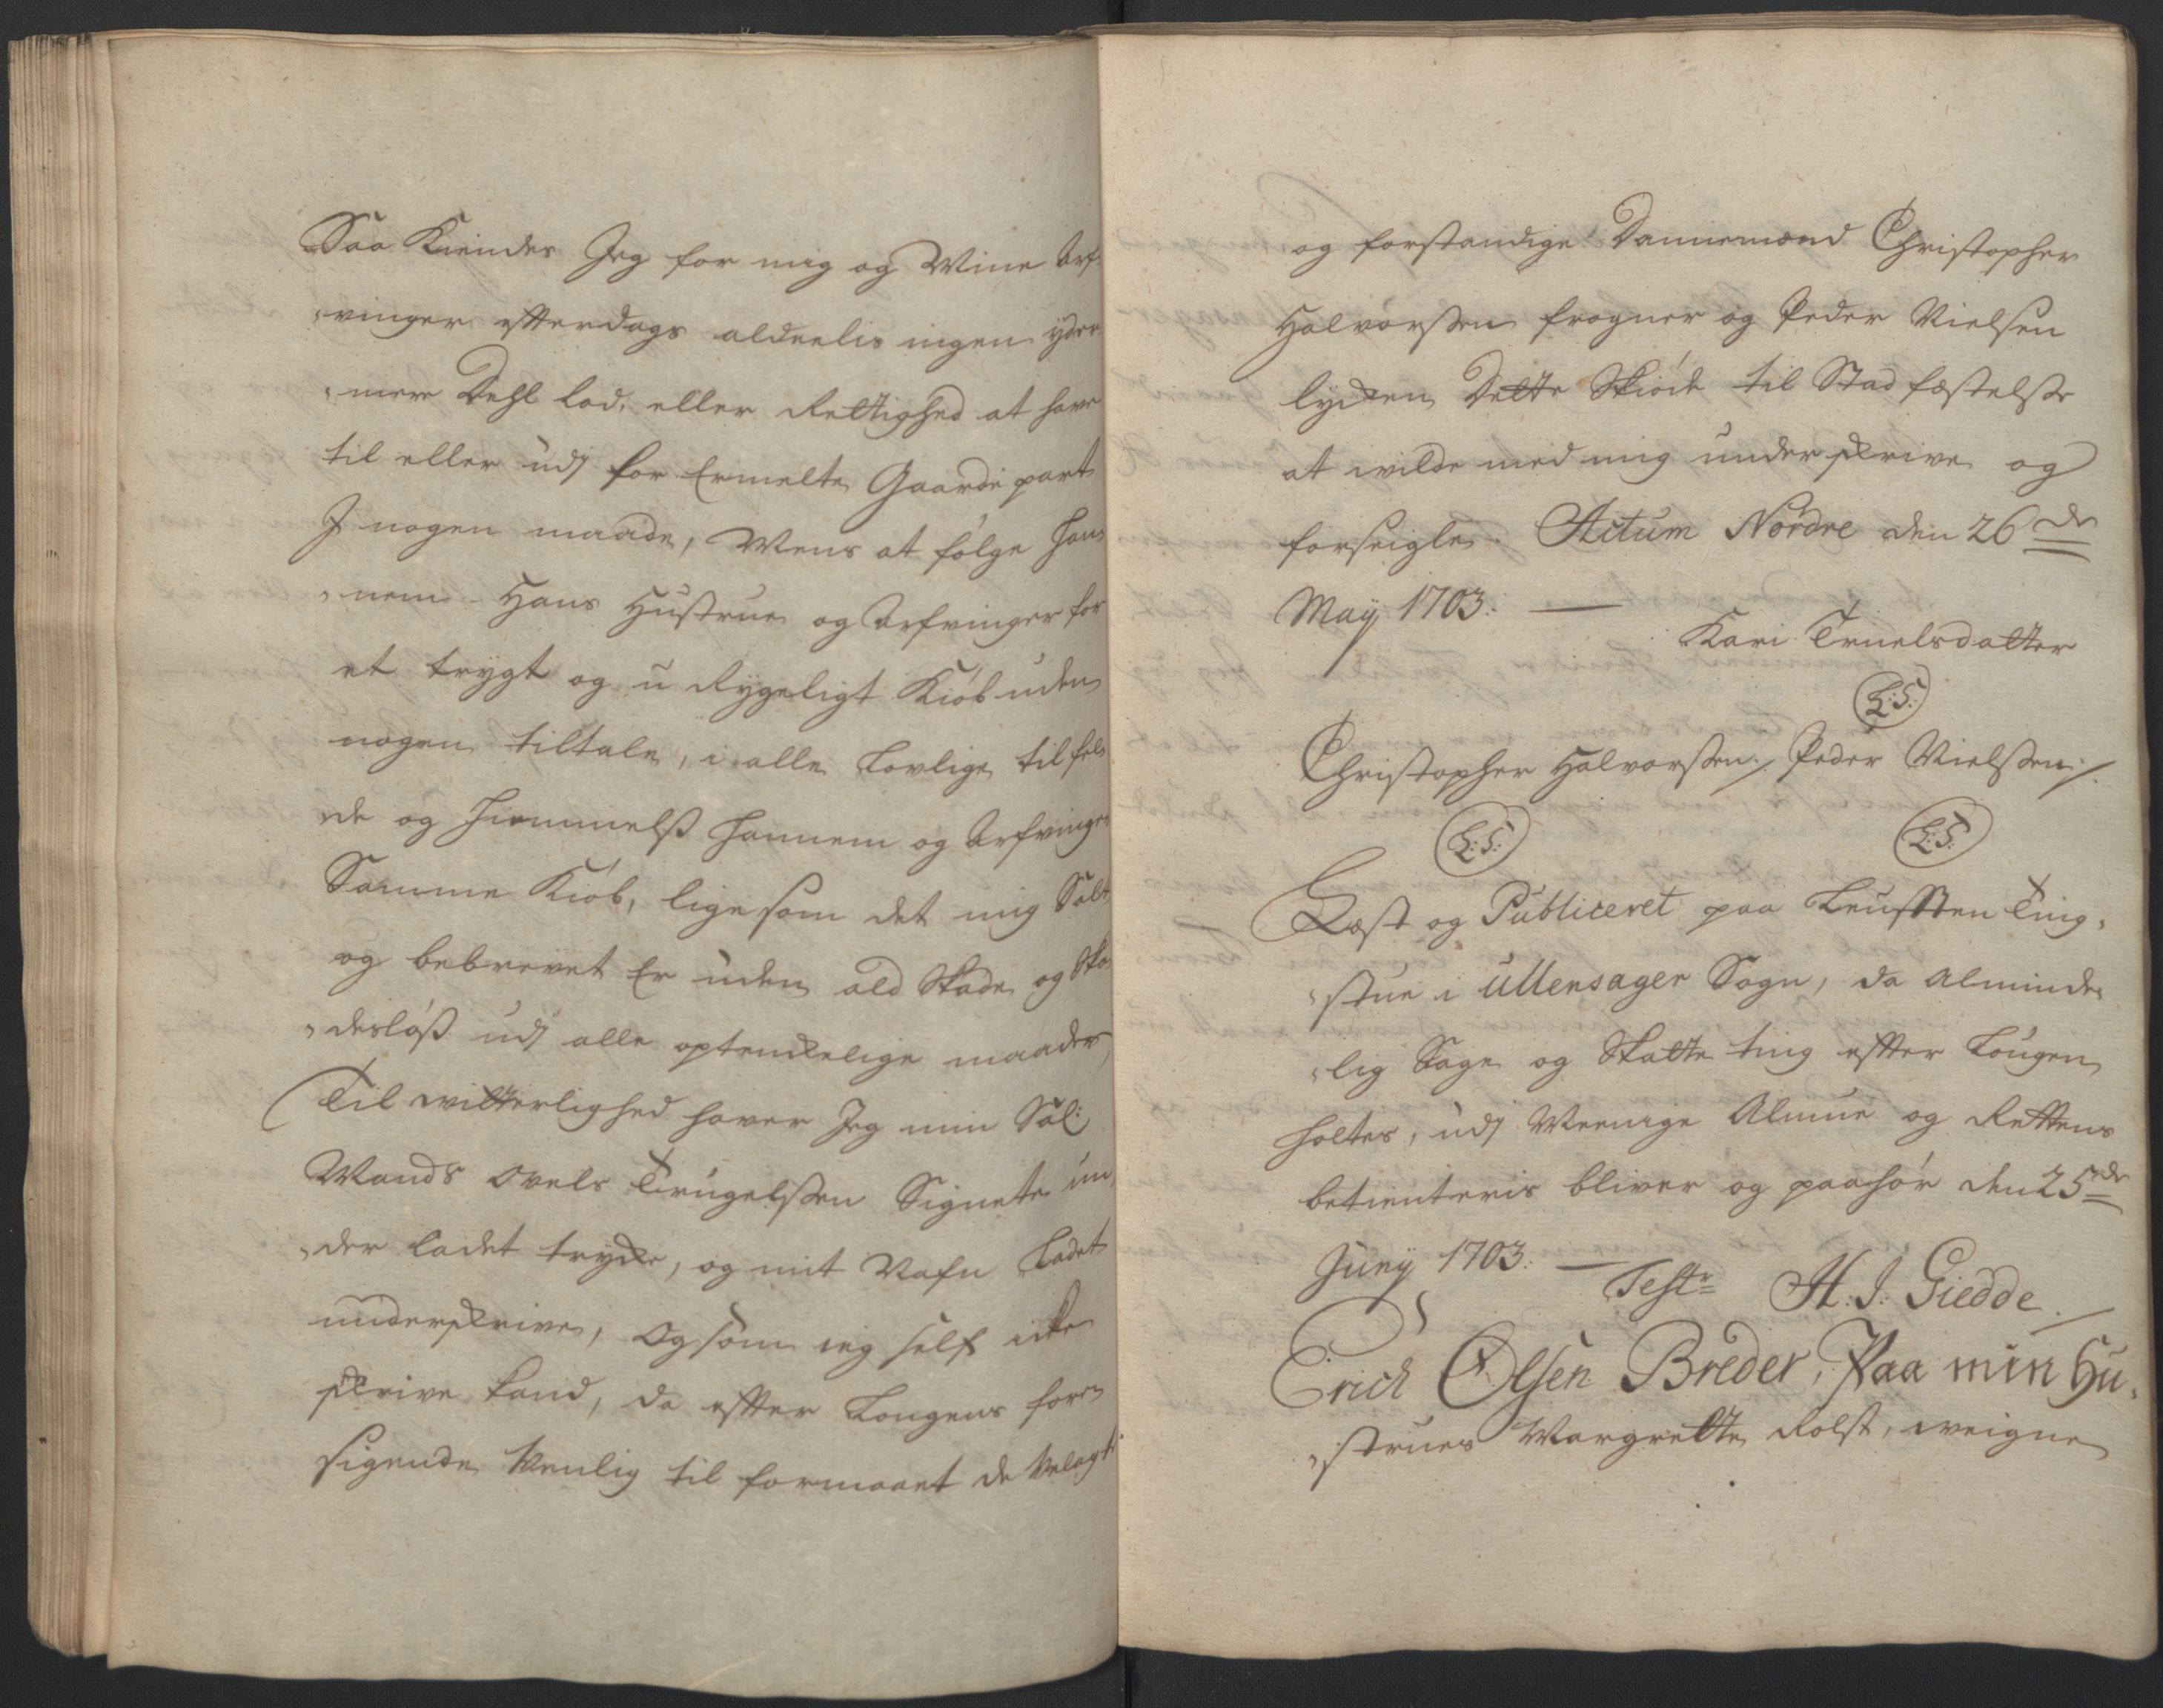 Saa Kiendes Jeg for mig og Mine Arf,
„vinger effterdags aldeelis ingen yder
„mere Dehl Lod, eller Rettighed at have
til eller udj for Ermelte Gaarde part
J nogen maade, Mens at følge han
„nem Hans Hustrue og Arfvinger for
et trygt og u Rygeligt Kiøb uden
nogen tiltale, i alle Lovlige tilfel
de og Hiemmelss hannem og Arfvinger
Samme Kiøb, lige som det mig Solt
og bebrevet Er uden ald Skade og Ska
„desløss udj alle optenckelige maader
Til witterlighed haver Jeg min Sal:
Mands Ovels Trugelssen Signete un
„der ladet trycke, og mit Nafn Ladet
underskrive, Og som jeg self icke
skrive kand, da effter Lougens fore
sigende Venlig til formaaet de Velagt
og forstandige Dannemænd Christopher
Halvorssen frogner og Peder Nielsen
lycken Dette Skiøde til Stadfæstelsse
at wilde med mig underskrive og
forseigle. Actum Nordre den 26de
Maij 1703. —
Kari Truelsdatter
L:S:
Christopher Halvorssen /. Peder Nielssen /.
L:S: L:S.
Læst og Publiceret paa Leufsten Ting„
„stue i Ullensager Sogn, da Alminde
„lig Sage og Skatte ting effter Lougen
holtes, udj Meenige Almue og Rettens
betienteris bliver og paahør den 25de
Junij 1703. —
Test. H. J. Giedde /.
Erich Olsen Breder, Paa min Hu„
„strues Margrette Rolst, weigne